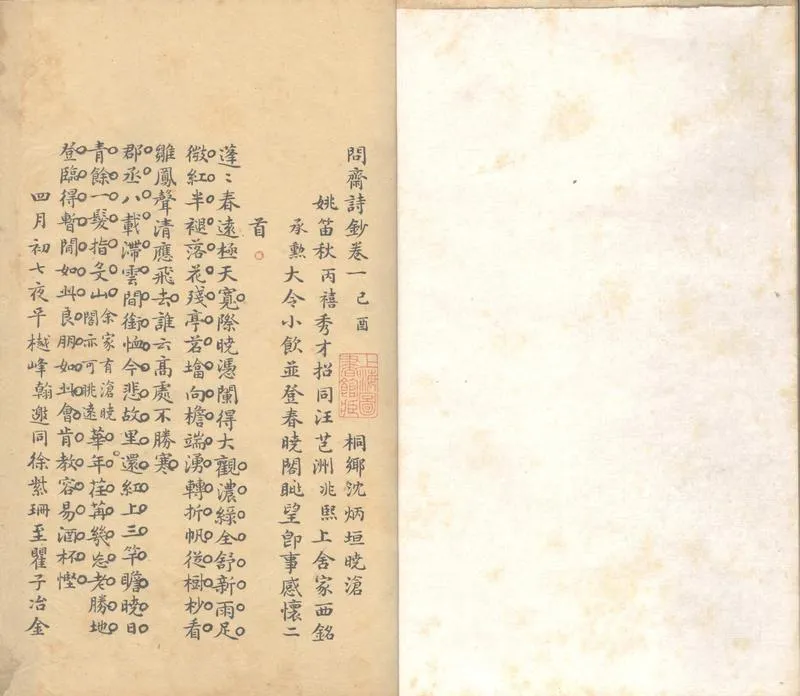 問齋詩鈔卷一 己酉 桐鄉沈炳垣曉滄
上海圖書館藏
姚笛秋丙禧秀才招同汪芑洲兆熙上舍家西銘
承勲大令小飲並登春曉閣眺望即事感懷二
首
蓬〻春遠極天寬際曉憑闌得大觀濃綠全舒新雨足
微紅半褪落花殘亭苕墖向檐端湧轉折帆從樹杪看
雛鳳聲清應飛去誰云高處不勝寒
郡丞八載滯雲間銜恤今悲故里還紅上三竿瞻曉日
青餘一髮指殳山余家有滄曉閣亦可眺遠華年荏苒幾忘老勝地
登臨得暫閒如此良朋如此會肯教容易酒杯慳
四月初七夜平樾峰翰邀同徐紫珊至瞿子冶金